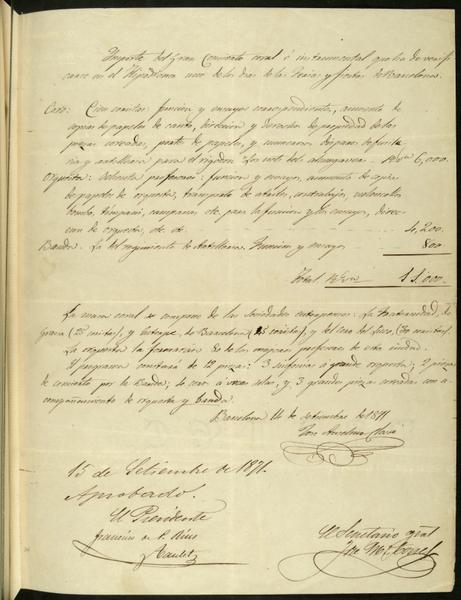 Importe del Gran Concierto coral é instrumental que ha de verifi-
carse en el Hipódromo uno de los dias de las ferias y fiestas de Barcelona.
Coro: Cien cantores funcion y ensayos correspondientes, aumento de
copias de papeles de canto, direccion y derechos de propiedad de las
piezas coreadas, de papeles, y
y para el rigodon. Los de alumnos Rs. vn 6,000.
Orquesta: Setenta profesores: funcion y ensayo, aumento de copias
de papeles de orquesta, transporte de atriles, contrabajos, violoncellos
bombo, timpani, campanas etc. para la funcion y los ensayos, direc-
cion de orquesta, etc. etc. 4,200.
Banda. La del regimiento de Artilleria. Funcion y ensayo 800
Total Rs. vn 11.000.
La masa coral se compone de las Sociedades euterpenses: La Fraternidad, de
Gracia y Euterpe, de Barcelona y del
La orquesta la formarán de los mejores profesores de esta ciudad.
El programa constará de 12 piezas: 3 sinfonias a grande orquesta; 2 piezas
de concierto por la Banda; coros a voces solas, y 3 grandes piezas coreadas con a-
compañamiento de orquesta y banda.
Barcelona 14 de setiembre de 1871
José Anselmo Clavé
15 de Setiembre de 1871.
Aprobado.
El Presidente
Francisco de P. Rius
y Taulet
El Secretario gral
José Mª Torres